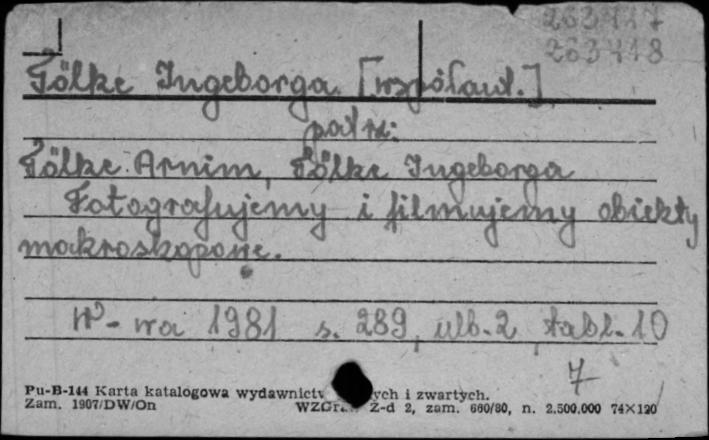 263417
263418
Fölke Ingeborga [współaut.]
patrz:
Fölke Arnim, Fölke Ingeborga
Fotografujemy i filmujemy obiekty
makroskopowe.
W-wa 1981 s. 289, ulb. 2, tabl. 10
7
Pu-B-144 Karta katalogowa wydawnictw ych i zwartych.
Zam. 1907/DW/On WZGraf. Z-d 2, zam. 660/80, n. 2.500.000 74×120